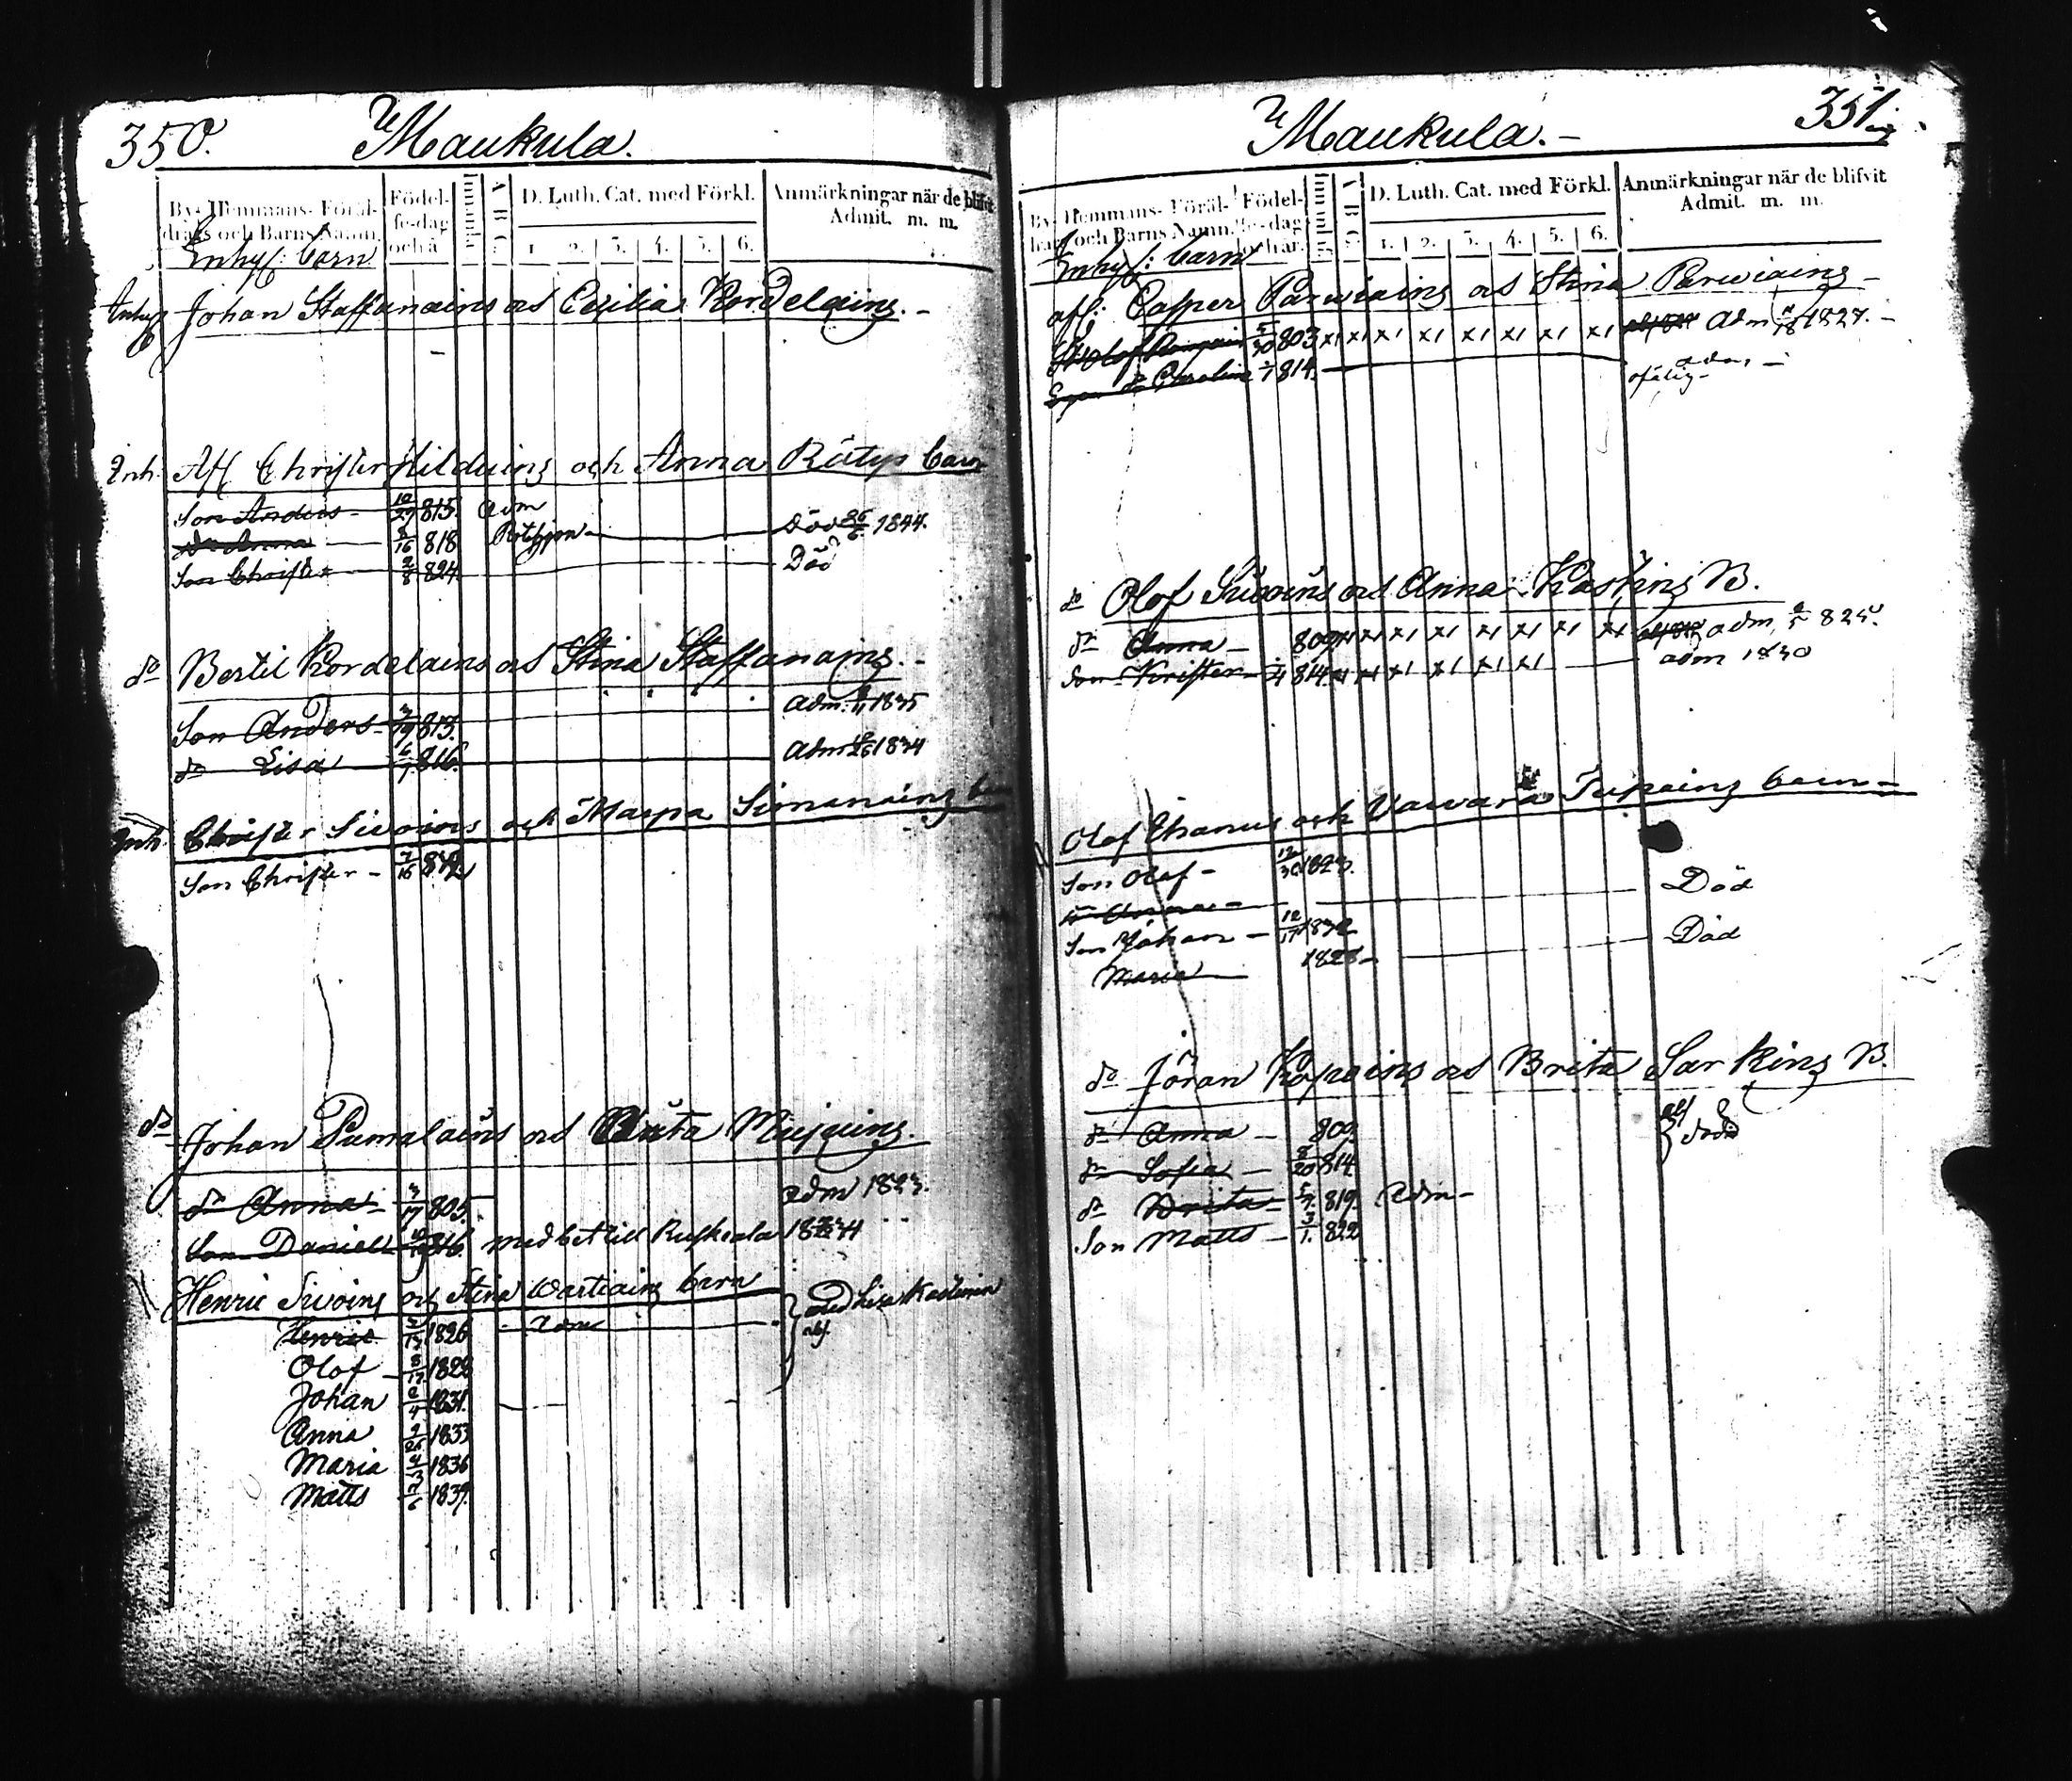 350.
Maukula.
By- Hemmans- Föräl-
drars och Barns Namn.
Födel-
se-dag
och å
Innanläs
A B C
D. Luth. Cat. med Förkl.
1. 2. 3. 4. 5. 6.
Anmärkningar när de blifvit
Admit. m. m.
Inhys: barn
Inhys Johan Staffanains och Cecilia Kordelains. -
Inh. Afl Christer Hilduins och Anna Rätys barn
Son Anders - 10/29 815. adm
Dr Anna 8/16 818 Död 1844.
Son Christer 2/8 824 Död
do Bertil Kordelains och Stina Staffanains. -
Son Anders - 3/19 813. adm. 1835
dr Lisa 6/7 816. adm 1834
Inh Christer Sivoins och Marpa Simanains
Son Christer - 7/16
do Johan Pumalains och Brita Mujuins.
dr Anna - 3/17 805. adm 1823.
Son Daniel 816. med bet till Ruskeala 1834
Henric Sivoins och Stina Wartiains barn
med Lisa Kastinen
Henric 1826 adm
abf.
Olof 8/17 1828
Johan 2/4 1831.
Anna 9/26 1833
Maria 4/3 1836
Matts 2/6 1839.
351.
Maukula. -
By- Hemmans- Föräl-
drars och Barns Namn.
Födel-
se-dag
och år.
Innanläs
A B C
D. Luth. Cat. med Förkl.
1. 2. 3. 4. 5. 6.
Anmärkningar när de blifvit
Admit. m. m.
Inhys: barn
afl: Casper Parviains och Stina Parviains -
Olof 5/30 803 x1 x1 x1 x1 x1 x1 x1 x1 adm 1827. -
dr Carolina 1/1 814.
ofärdig -
do Olof Sivoins och Anna Kastins B.
dr Anna - 809 x1 x1 x1 x1 x1 x1 x1 adm, 825.
Son Krister 814 x1 x1 x1 x1 x1 x1 adm 1830
Olof Ihanus och Varvara Tupains barn -
Son Olof - 12/30 1823.
dr Anna - Död
Son Johan - 12/17 1832
Maria 1828 - Död
do Jöran Kopoins och Brita Sarkins B.
dr Anna - 809. afl
dr Sofia - 8/20 814. död
dr Brita - 5/7. 819. adm -
Son Matts - 3/1. 822